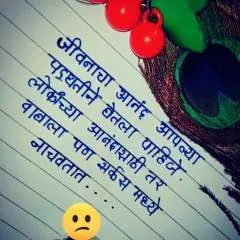 जीवनाचा आनंद आपल्या
पद्धतीने घेतला पाहिजे.
लोकांच्या आनंदासाठी तर
वाघाला पण सर्कस मध्ये
नाचवतात.....